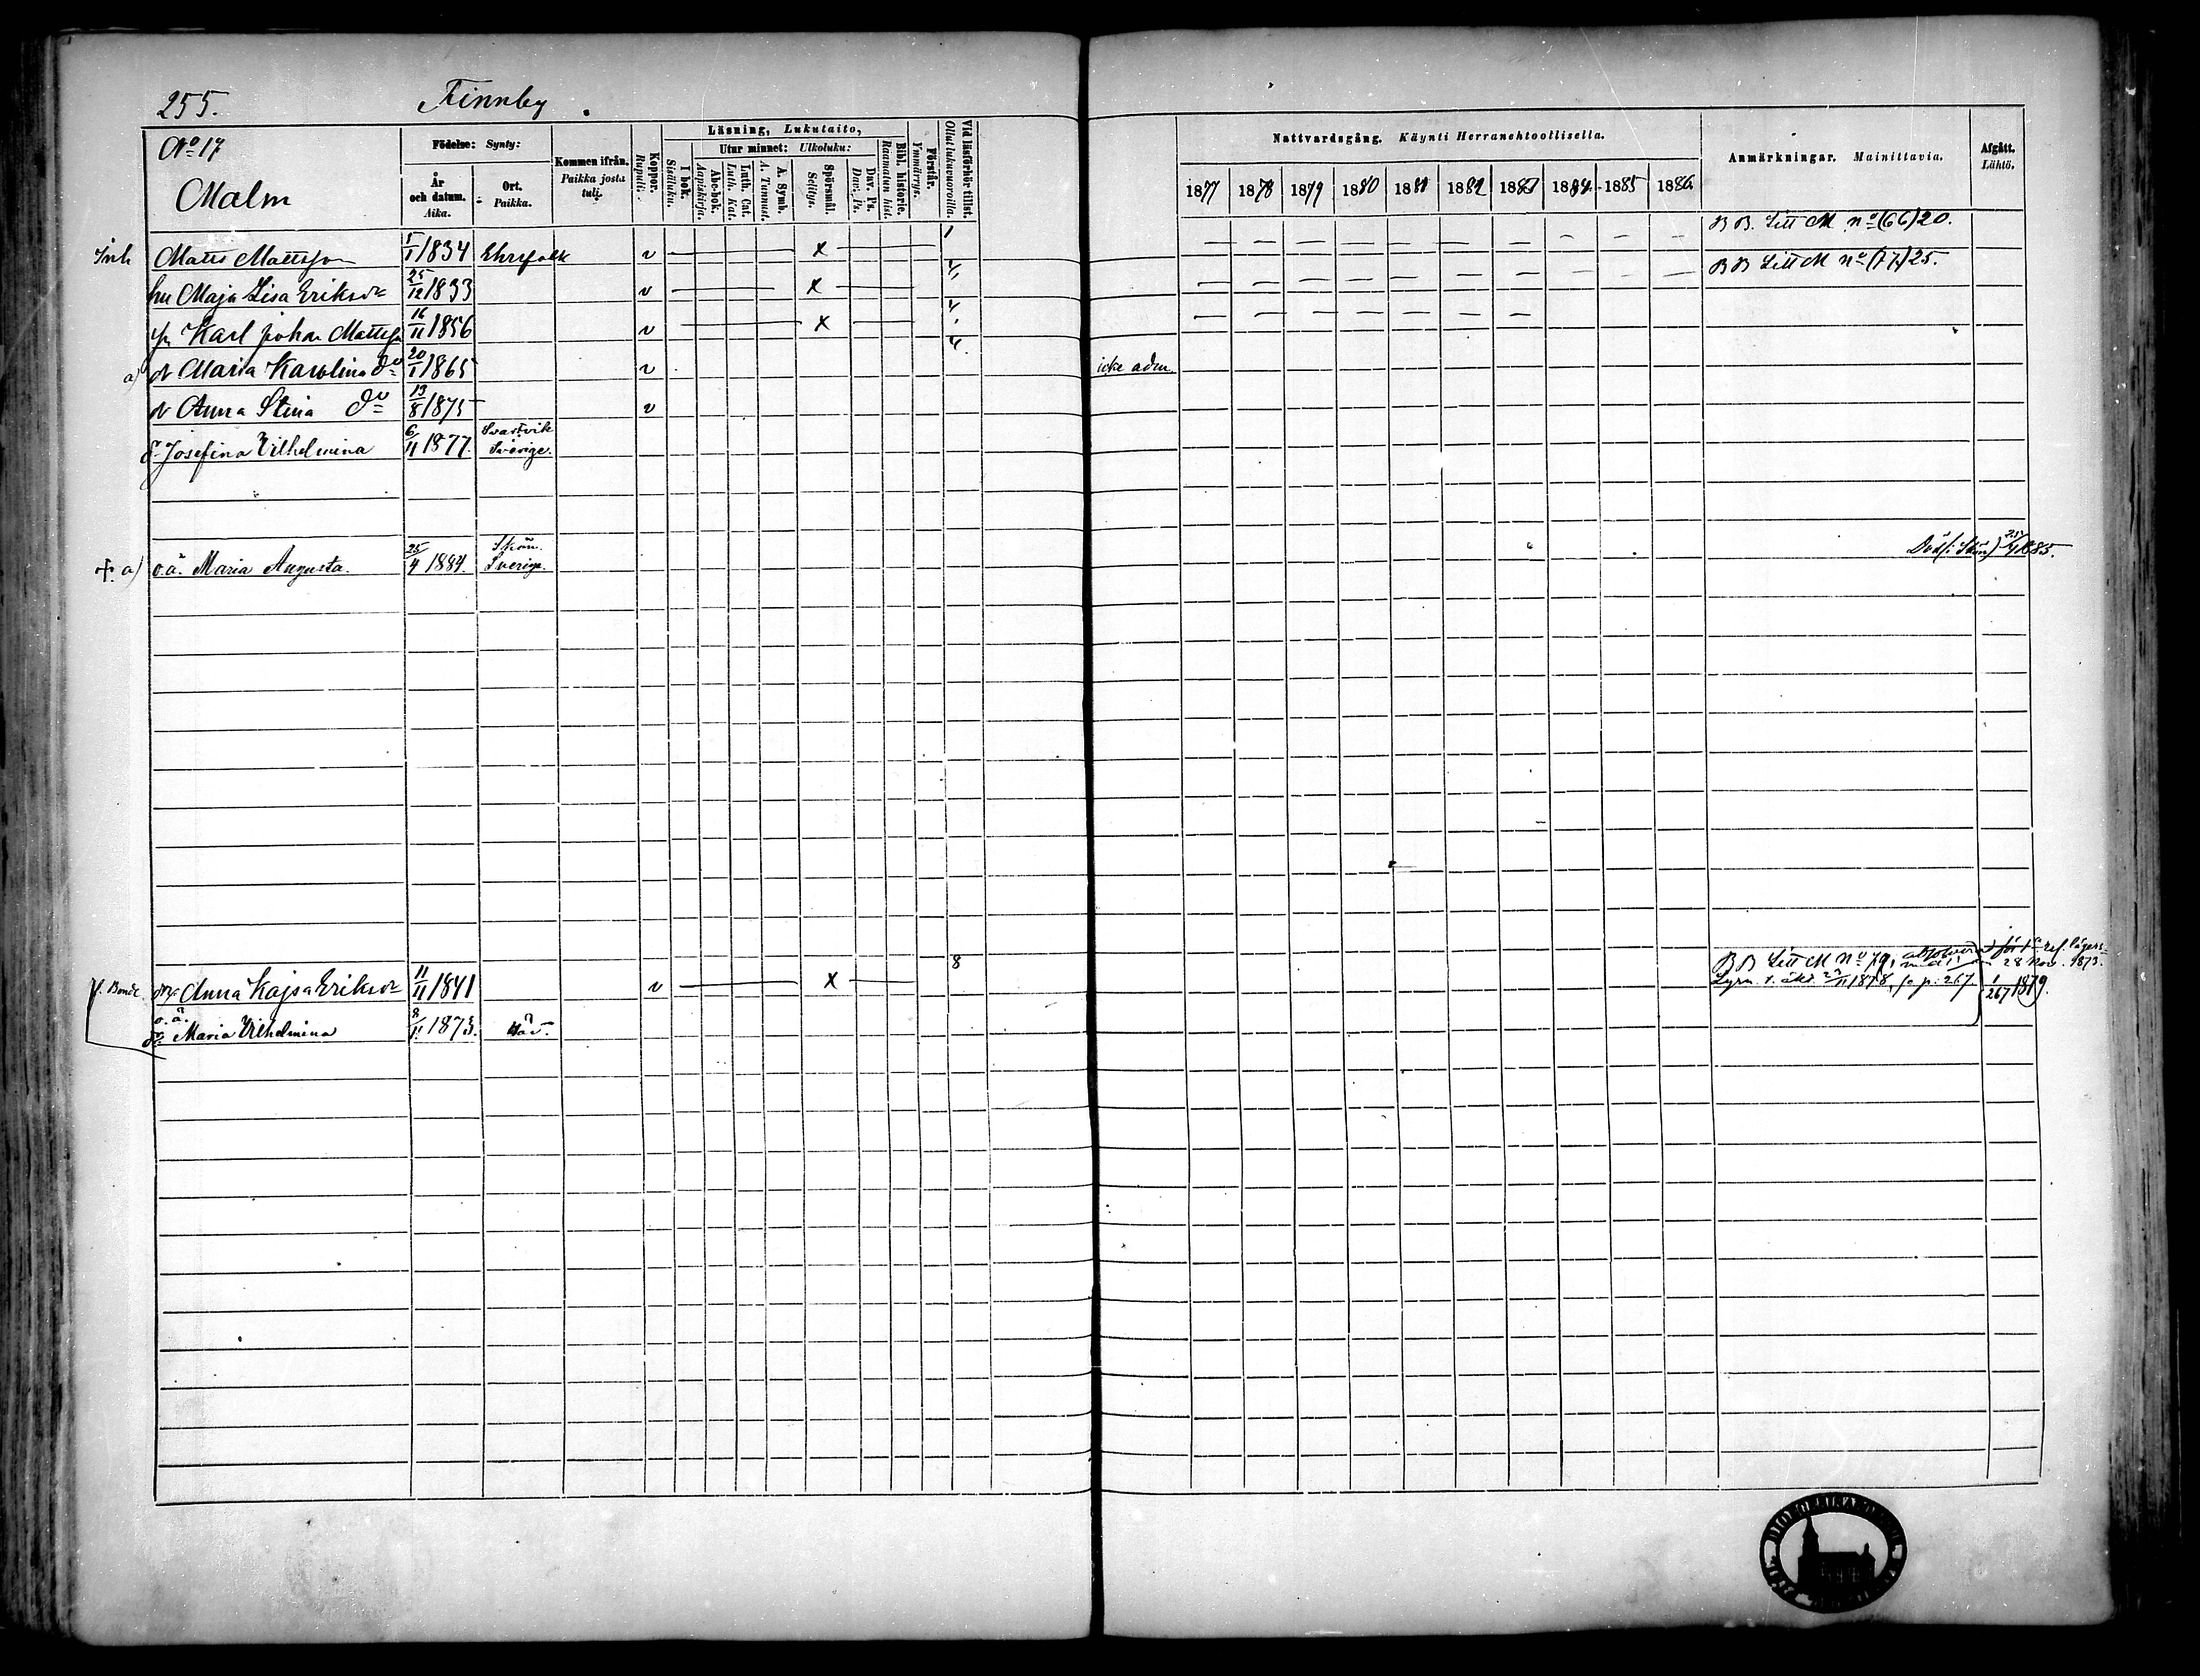 255. Finnby
No 17
Malm
Födelse: Synty:
År och datum. Aika.
Ort. Paikka.
Kommen ifrån. Paikka josta tuli.
Koppor. Rupuli.
Läsning, Lukutaito,
I bok. Sisäluku.
Utur minnet: Ulkoluku:
Abc-bok. Aapiskirja.
Luth. Cat. Luth. Kat.
A. Symb. A. Tunnust.
Spörsmål. Selitys.
Dav. Ps. Dav. Ps.
Bibl. historie. Raamatun hist.
Förstår. Ymmärrys.
Vid läsförhör tillst. Ollut lukuvuoroilla.
Nattvardsgång. Käynti Herranehtoollisella.
1877 1878 1879 1880 1881 1882 1883 1884 1885 1886
Anmärkningar. Mainittavia.
Afgått. Lähtö.
Inh Matts Mattsson 5/1 1834 v x 1 B B. Litt M no (66) 20.
hu Maja Lisa Eriksdr 25/12 1833 v x B B Litt M no (77) 25.
Karl Johan Mattsson 16/11 1856 v x
a) Maria Karolina do 20/1 1865 v icke adm.
Anna Stina do 13/8 1875 v
dr Josefina Vilhelmina 6/11 1877. Svartvik Sverige.
a) o.ä. Maria Augusta. 25/4 1884. Skön. Sverige. Död (i Skön) 1885.
Anna Kajsa Eriksdr 11/11 1841 v x 8 B B Litt M no 1878, p. 267 28 Nov. 1873. 1/267 1879.
o.ä.
dr Maria Vilhelmina 8/11 1873.